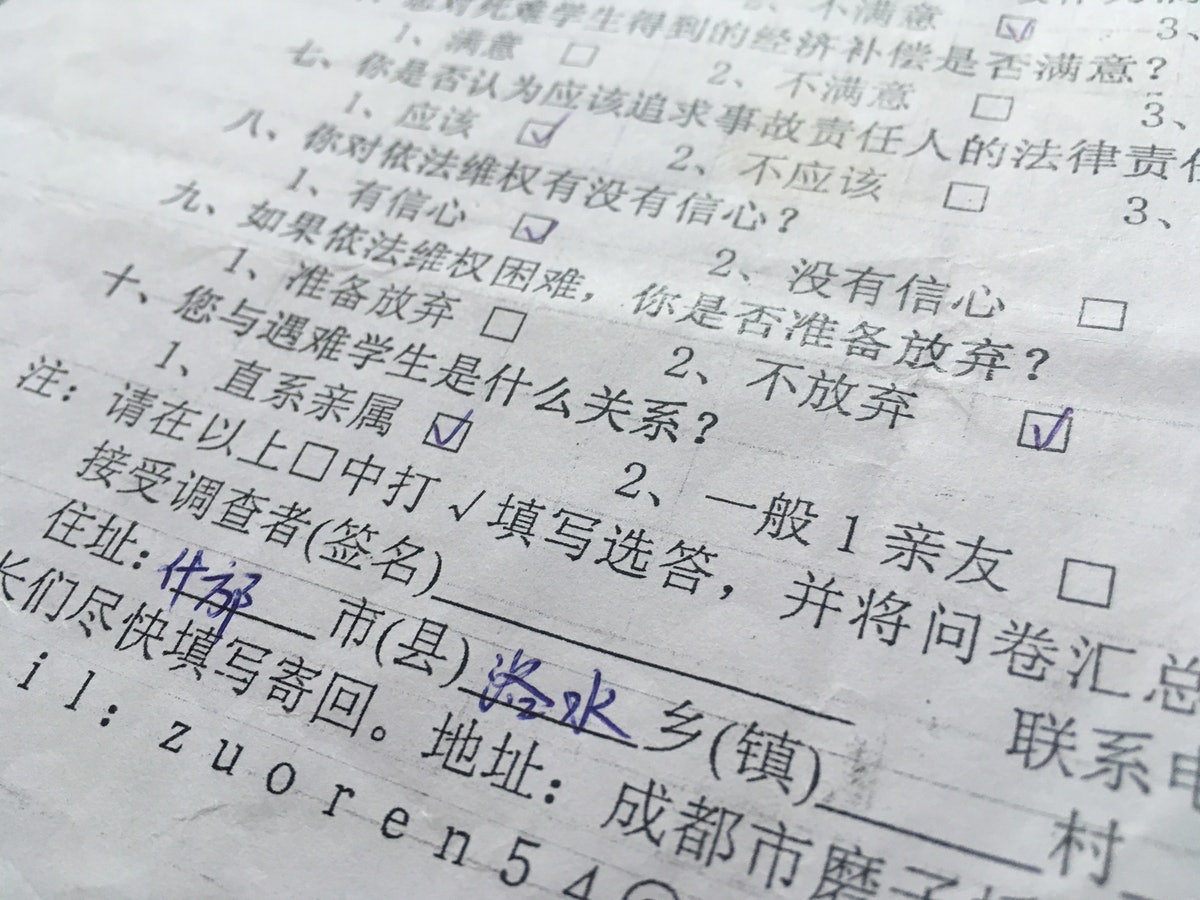 2、不满意 ☑ 3、
您对死难学生得到的经济补偿是否满意？
1、满意 □ 2、不满意 □ 3、
七、你是否认为应该追求事故责任人的法律责任
1、应该 ☑ 2、不应该 □ 3、
八、你对依法维权有没有信心？
1、有信心 ☑ 2、没有信心 □
九、如果依法维权困难，你是否准备放弃？
1、准备放弃 □ 2、不放弃 ☑
十、您与遇难学生是什么关系？
1、直系亲属 ☑ 2、一般1亲友 □
注：请在以上□中打√填写选答，并将问卷汇总
接受调查者(签名) 联系电
住址：什邡 市(县) 洛水 乡(镇) 村
长们尽快填写寄回。地址：成都市磨子
il：zuoren54@